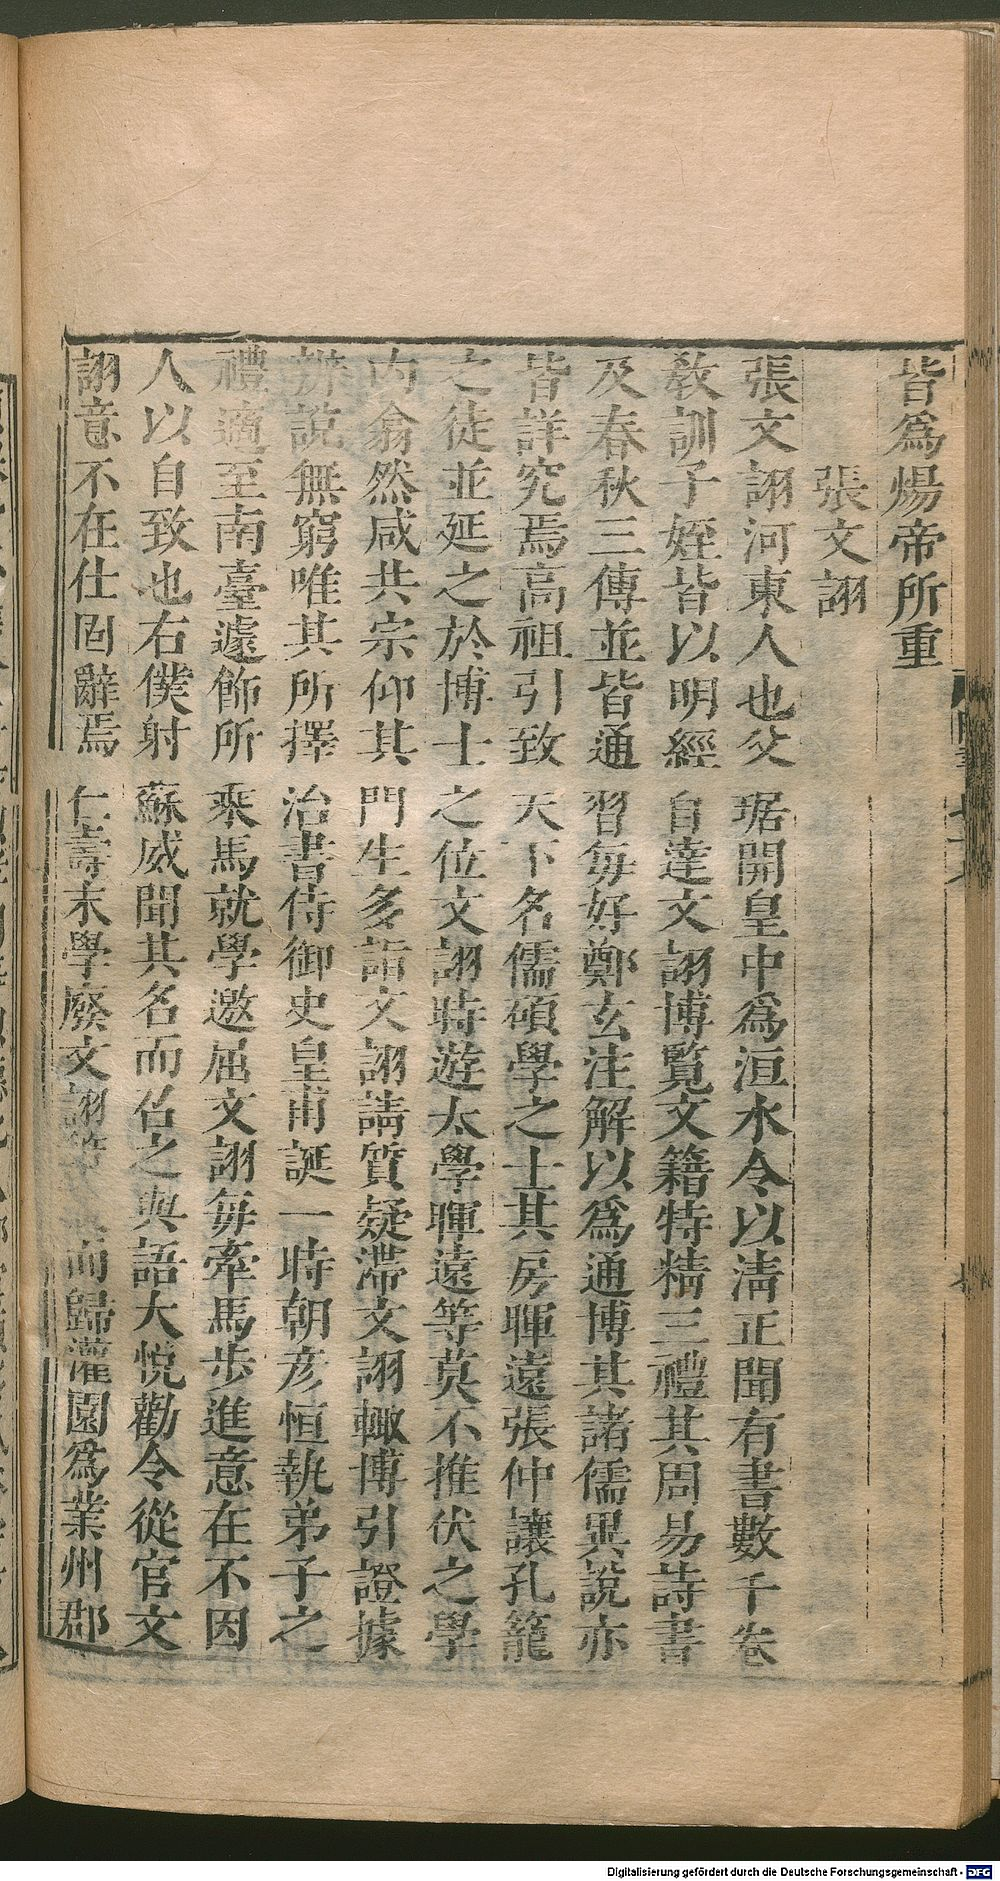 皆爲煬帝所重
張文詡
張文詡河東人也父琚開皇中爲洹水令以淸正聞有書數千卷
敎訓子姪皆以明經自達文詡博覽文籍特精三禮其周易詩書
及春秋三傳並皆通習每好鄭玄注解以爲通博其諸儒異說亦
皆詳究焉高祖引致天下名儒碩學之士其房暉遠張仲讓孔籠
之徒並延之於博士之位文詡時遊太學暉遠等莫不推伏之學
内翕然咸共宗仰其門生多詣文詡請質疑滯文詡輙博引證據
辨說無窮唯其所擇治書侍御史皇甫誕一時朝彦恒執弟子之
禮適至南臺遽飾所乘馬就學邀屈文詡每牽馬步進意在不因
人以自致也右僕射蘇威聞其名而召之與語大悅勸令從官文
詡意不在仕固辭焉仁壽末學廢文詡策 而歸灌園爲業州郡
Digitalisierung gefördert durch die Deutsche Forschungsgemeinschaft - DFG